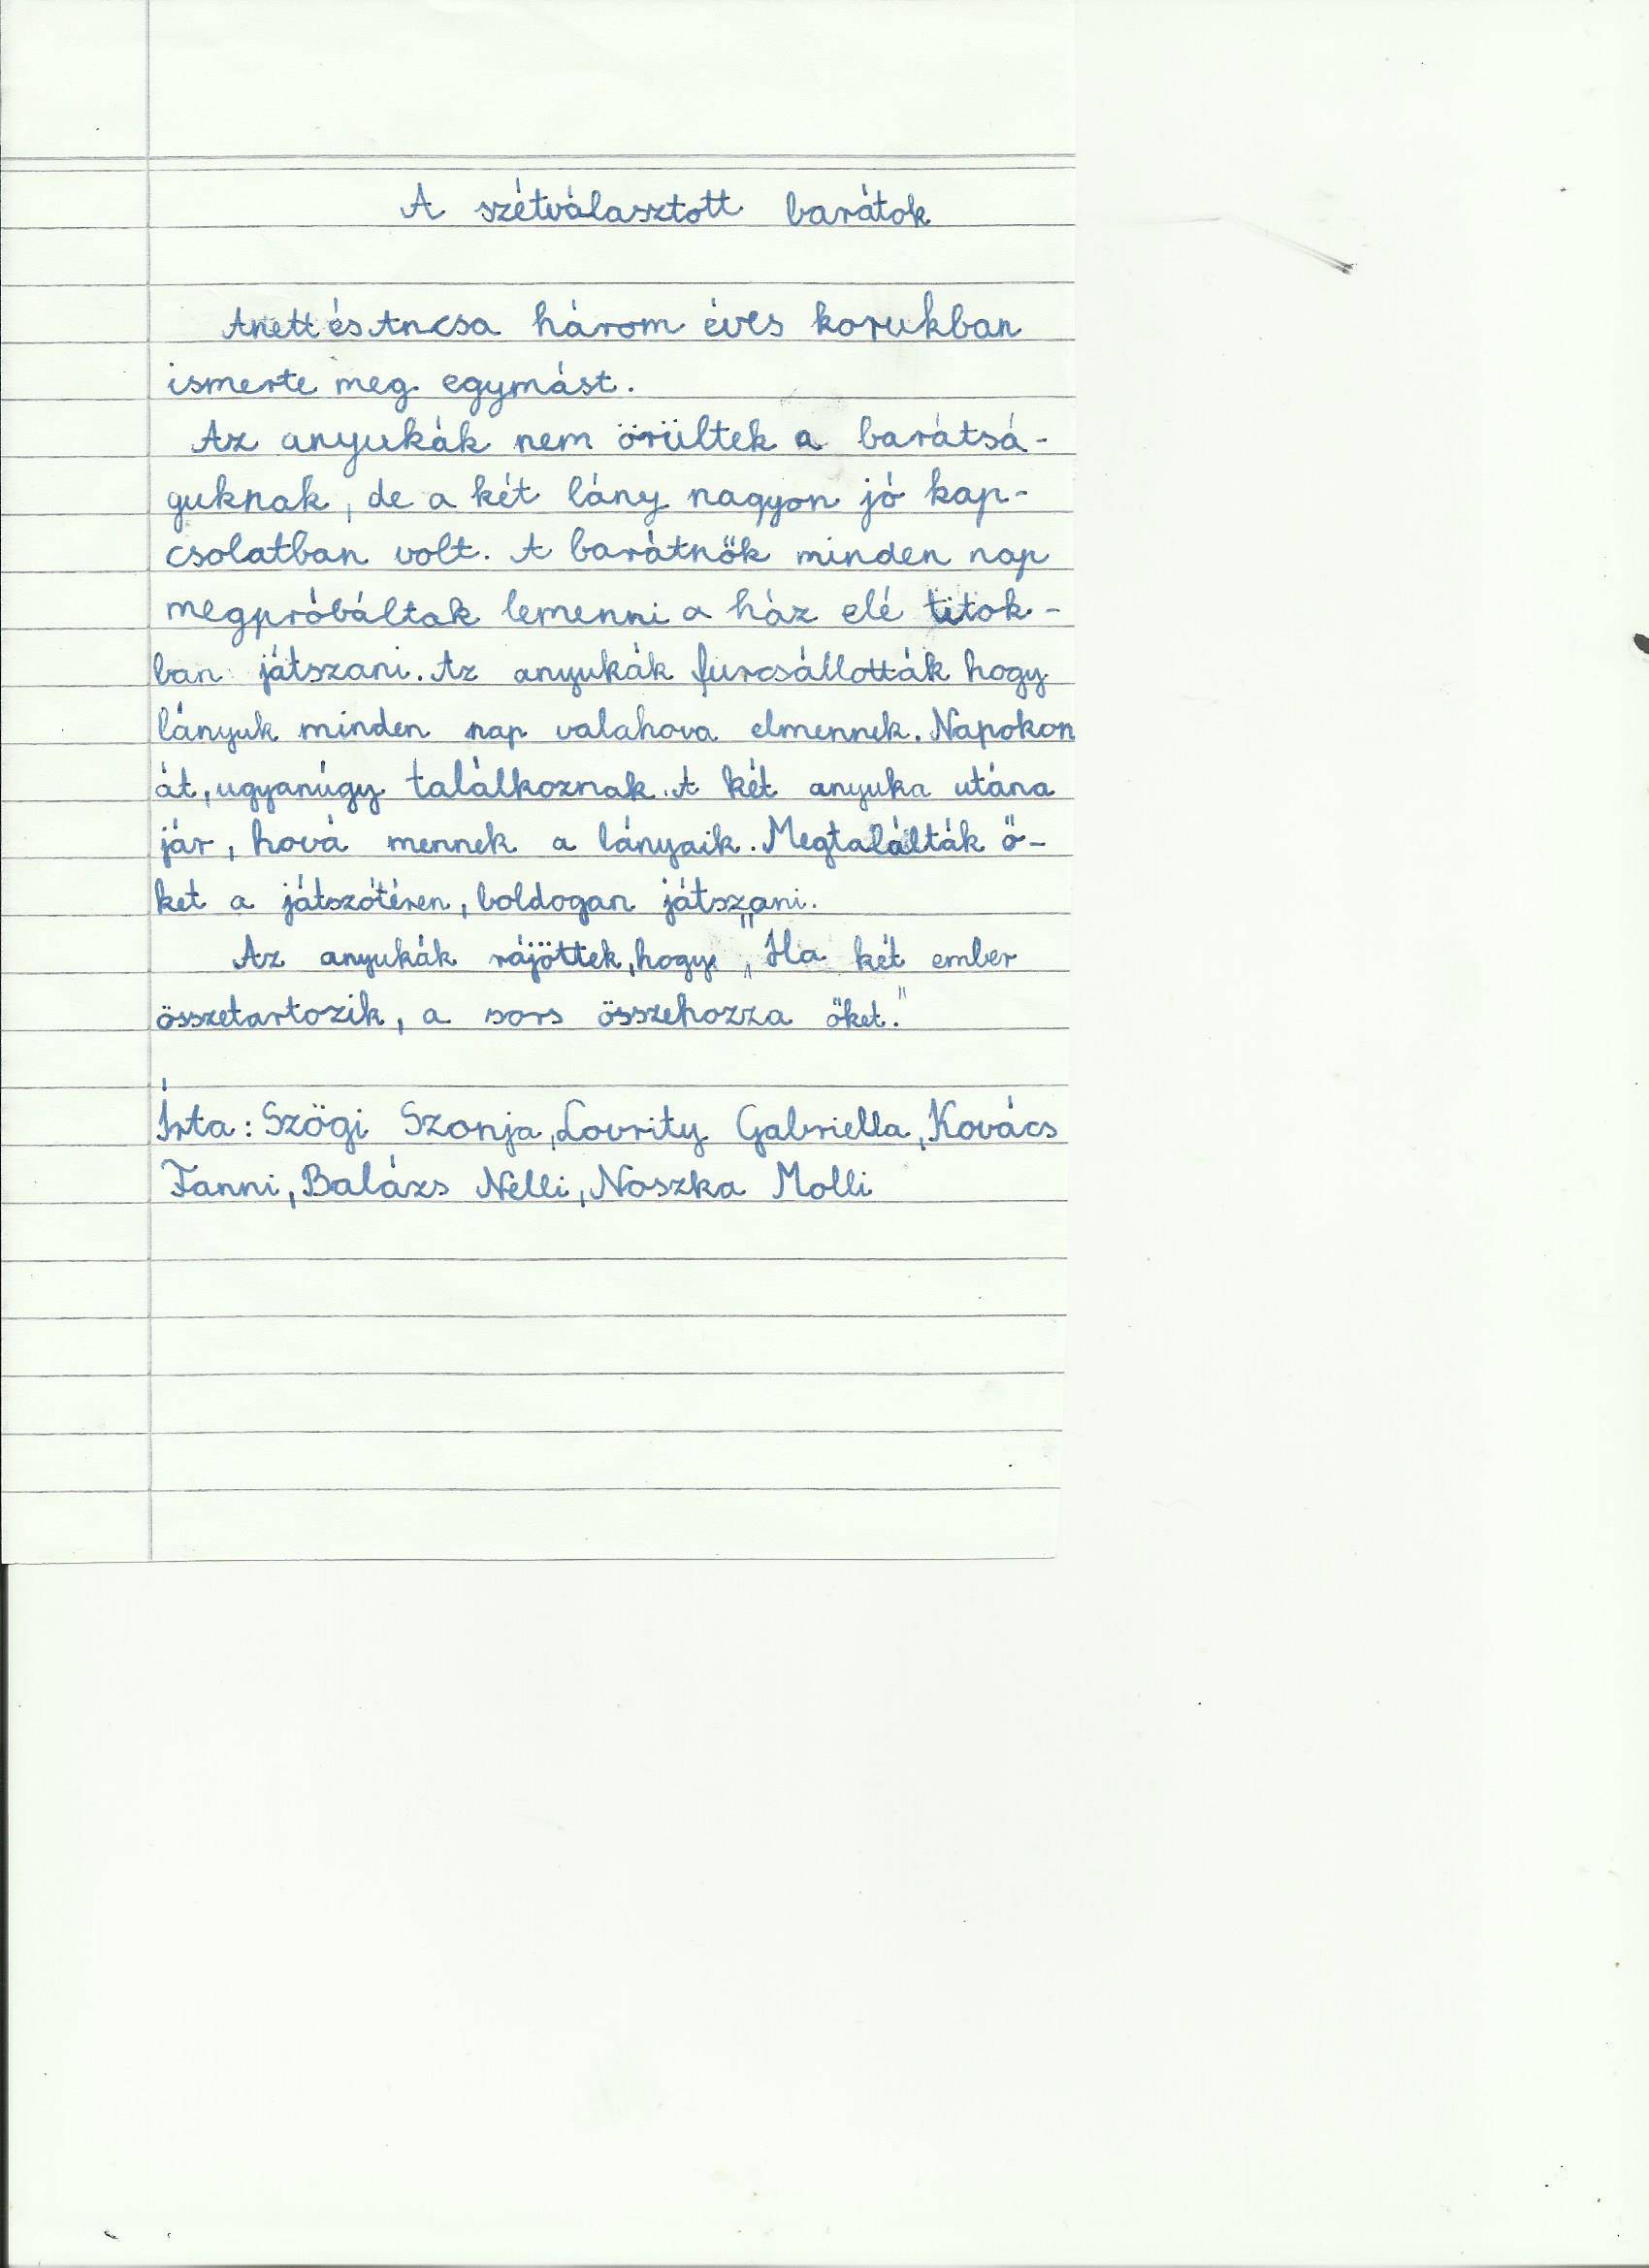 A szétválasztott barátok
Anett és Ancsa három éves korukban
ismerte meg egymást.
Az anyukák nem örültek a barátsá-
guknak, de a két lány nagyon jó kap-
csolatban volt. A barátnők minden nap
megpróbáltak lemenni a ház elé titok-
ban játszani. Az anyukák furcsállották hogy
lányuk minden nap valahova elmennek. Napokon
át, ugyanúgy találkoznak. A két anyuka utána
jár, hová mennek a lányaik. Megtalálták ő-
ket a játszótéren, boldogan játszani.
Az anyukák rájöttek, hogy: „Ha két ember
összetartozik, a sors összehozza őket."
Írta: Szögi Szonja, Lovrity Gabriella, Kovács
Fanni, Balázs Nelli, Noszka Molli